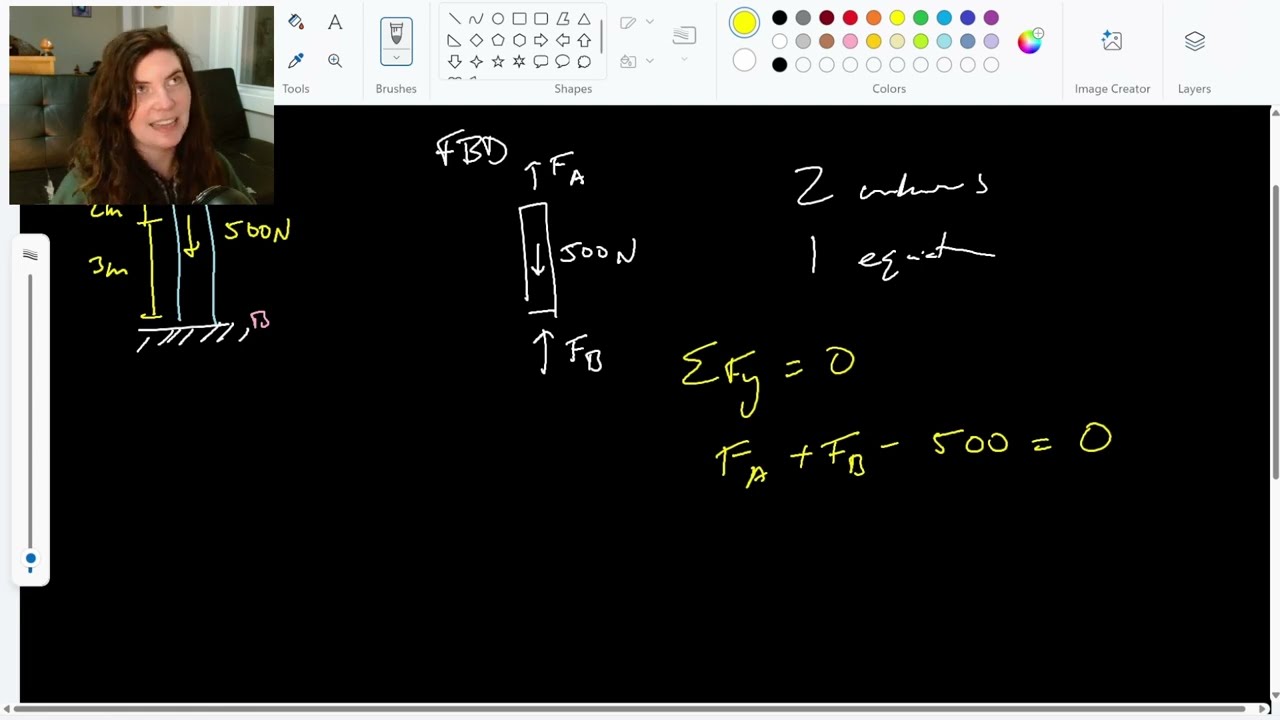 Tools
Brushes
Shapes
Colors
Image Creator
Layers
A
2m
3m
500N
B
FBD
F_A
500N
F_B
2
1
ΣFy = 0
F_A + F_B - 500 = 0